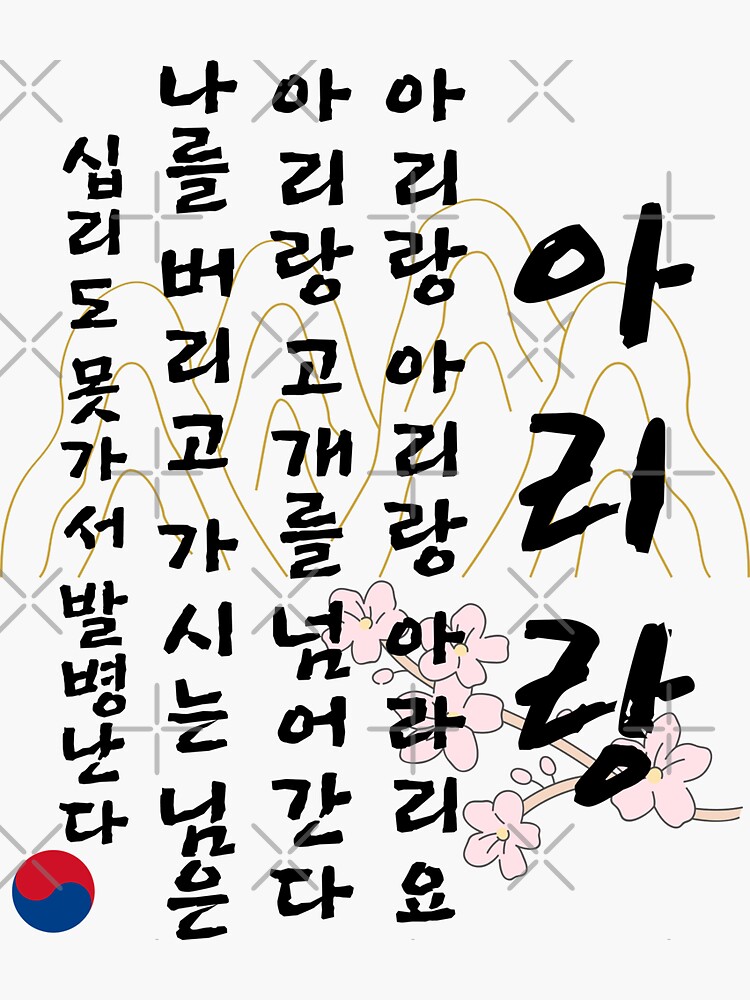 아리랑
아리랑 아리랑 아라리요
아리랑 고개를 넘어간다
나를 버리고 가시는 님은
십리도 못가서 발병난다